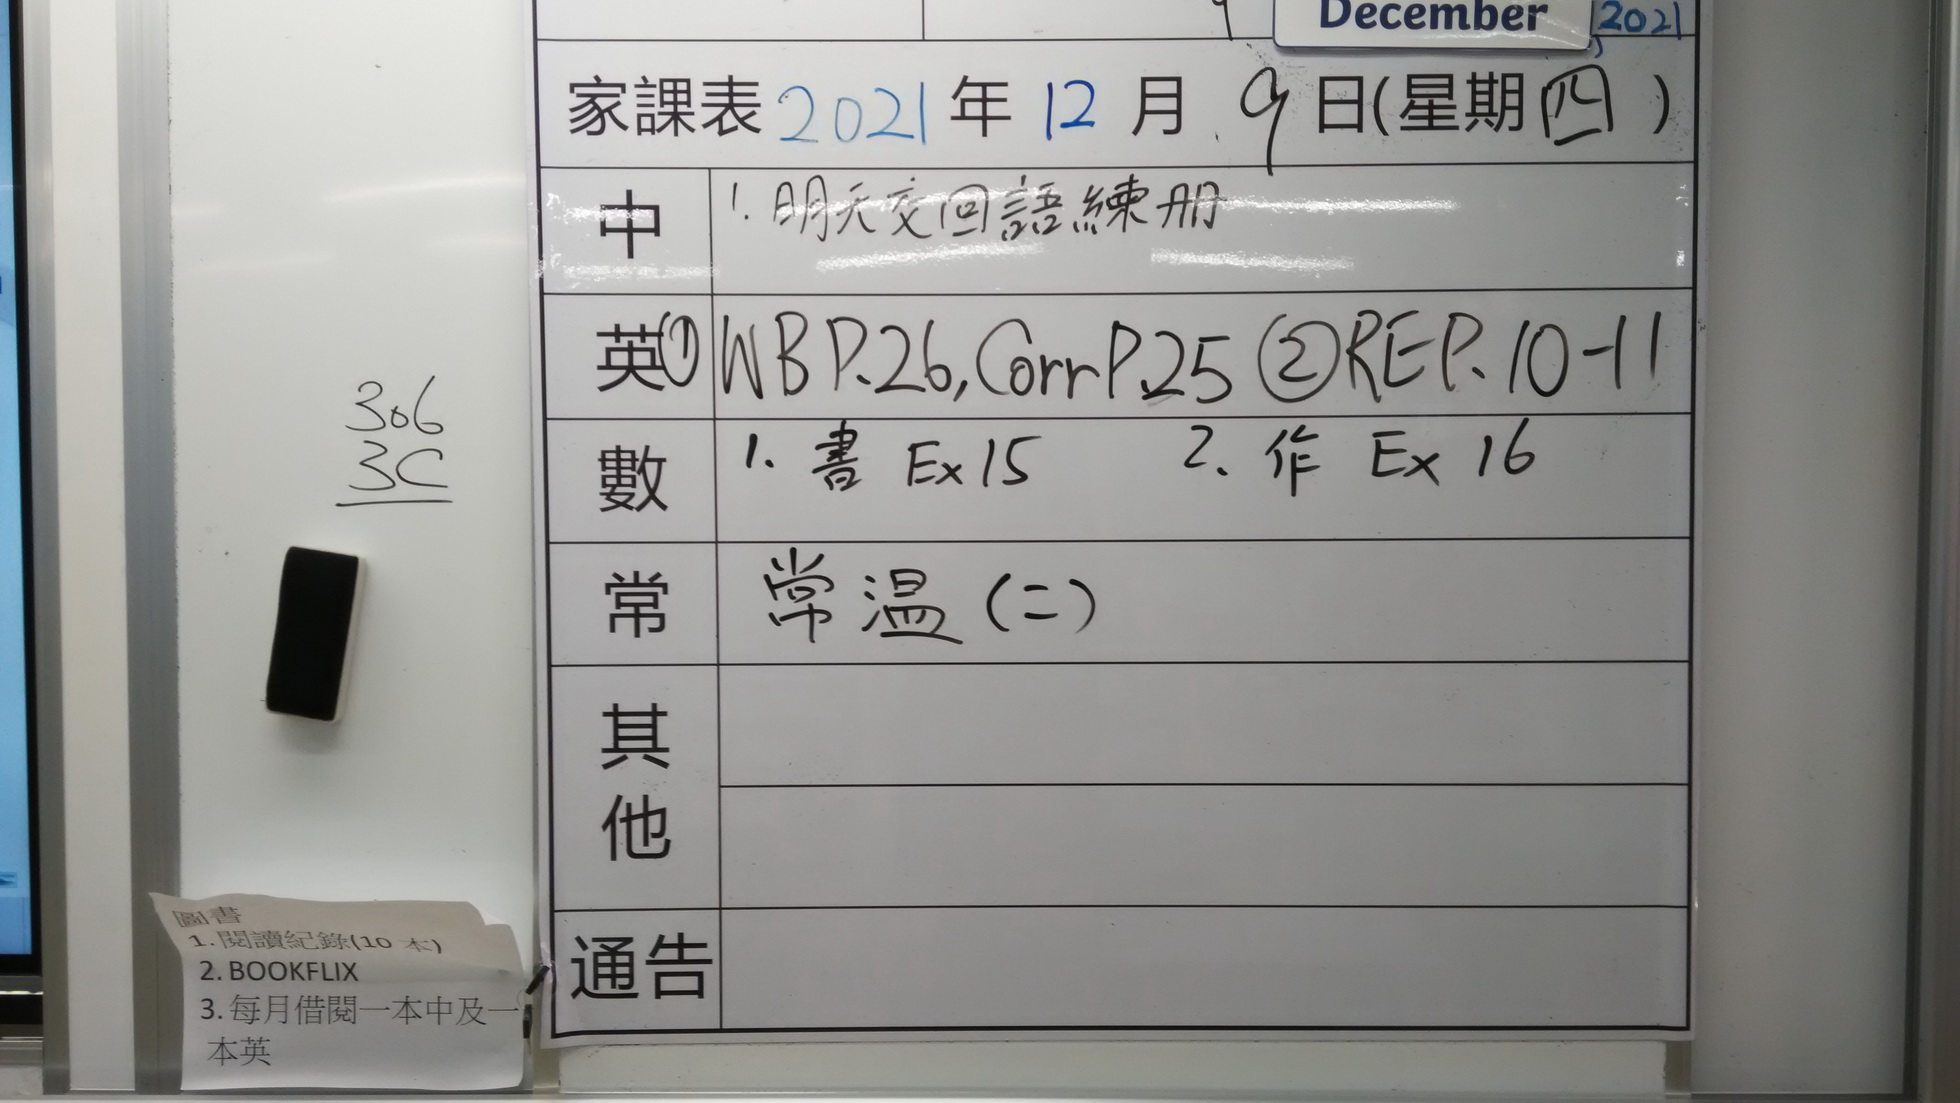 December 2021
家課表 2021 年 12 月 9 日(星期四)
中 1. 明天交回語練册
英 ① WB P.26, Corr P.25 ② RE P.10-11
數 1. 書 Ex 15 2. 作 Ex 16
常 常溫(二)
其他
通告
306
3C
圖書
1. 閱讀紀錄(10 本)
2. BOOKFLIX
3. 每月借閱一本中及一
本英